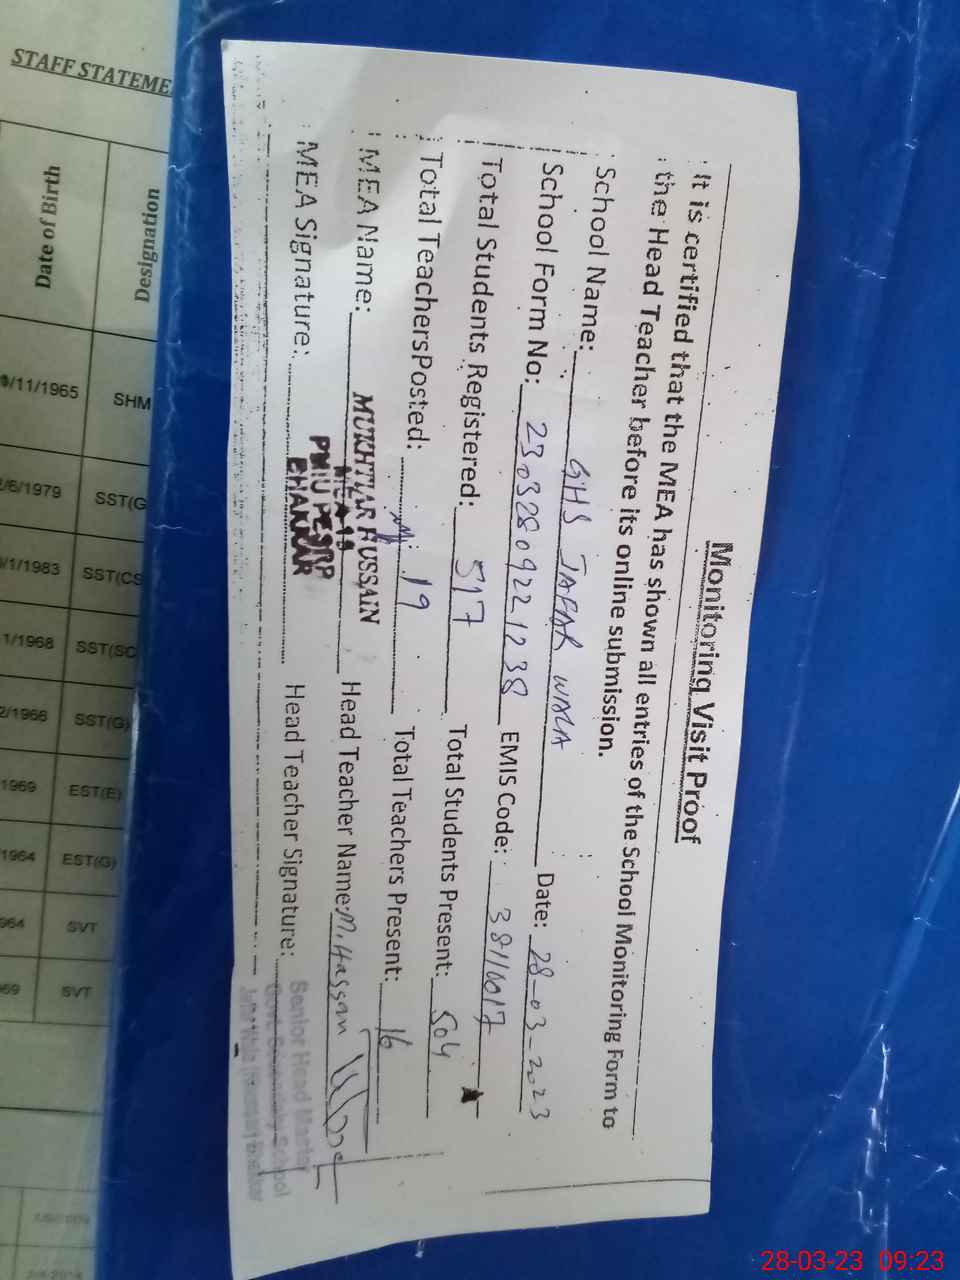 Monitoring Visit Proof
It is certified that the MEA has shown all entries of the School Monitoring Form to
the Head Teacher before its online submission.
School Name: GHS JAFAR WALA Date: 28-03-2023
School Form No: 23032809221238 EMIS Code: 38110017
Total Students Registered: 517 Total Students Present: 504
Total TeachersPosted: 19 Total Teachers Present: 16
MEA Name: MUKHTIAR HUSSAIN Head Teacher Name: M. Hassan
MEA Signature: Head Teacher Signature:
PMIU PESRP
BHAKKAR
Senior Head Master
Govt. Secondary School
STAFF STATEME
Date of Birth
Designation
/11/1965 SHM
/6/1979 SST(G
/1/1983 SST(CS
1/1968 SST(SC
2/1966 SST(G)
1969 EST(E)
1964 EST(G)
964 SVT
69 SVT
28-03-23 09:23